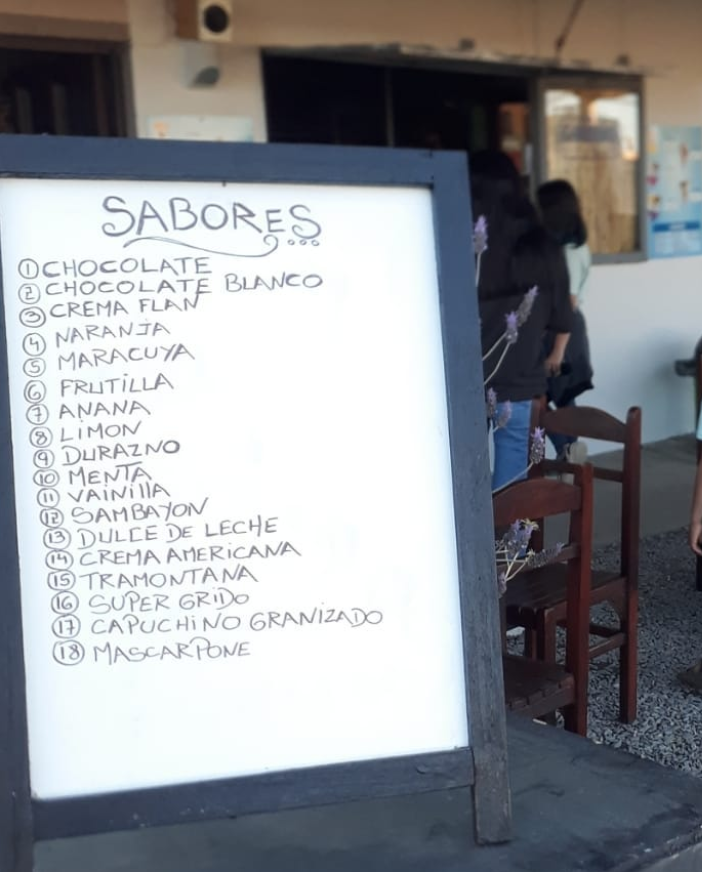 SABORES...
① CHOCOLATE
② CHOCOLATE BLANCO
③ CREMA FLAN
④ NARANJA
⑤ MARACUYA
⑥ FRUTILLA
⑦ ANANA
⑧ LIMON
⑨ DURAZNO
⑩ MENTA
⑪ VAINILLA
⑫ SAMBAYON
⑬ DULCE DE LECHE
⑭ CREMA AMERICANA
⑮ TRAMONTANA
⑯ SUPER GRIDO
⑰ CAPUCHINO GRANIZADO
⑱ MASCARPONE